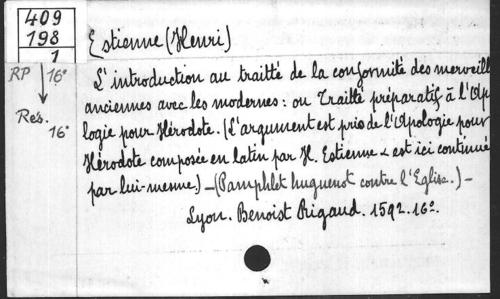 409
198
1
RP 16°
Rés.
16°
Estienne (Henri)
L'introduction au traitté de la conformité des merveill
anciennes avec les modernes : ou Traitté préparatif à l'Apo
logie pour Hérodote. (L'argument est pris de l'Apologie pour
Hérodote composée en latin par H. Estienne & est ici continué
par lui-mesme.) — (Pamphlet huguenot contre l'Eglise.) —
Lyon. Benoist Rigaud. 1592. 16°.